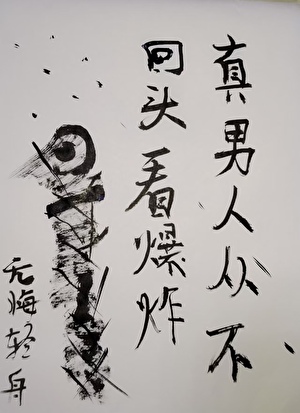 真男人从不
回头看爆炸
无悔轻舟